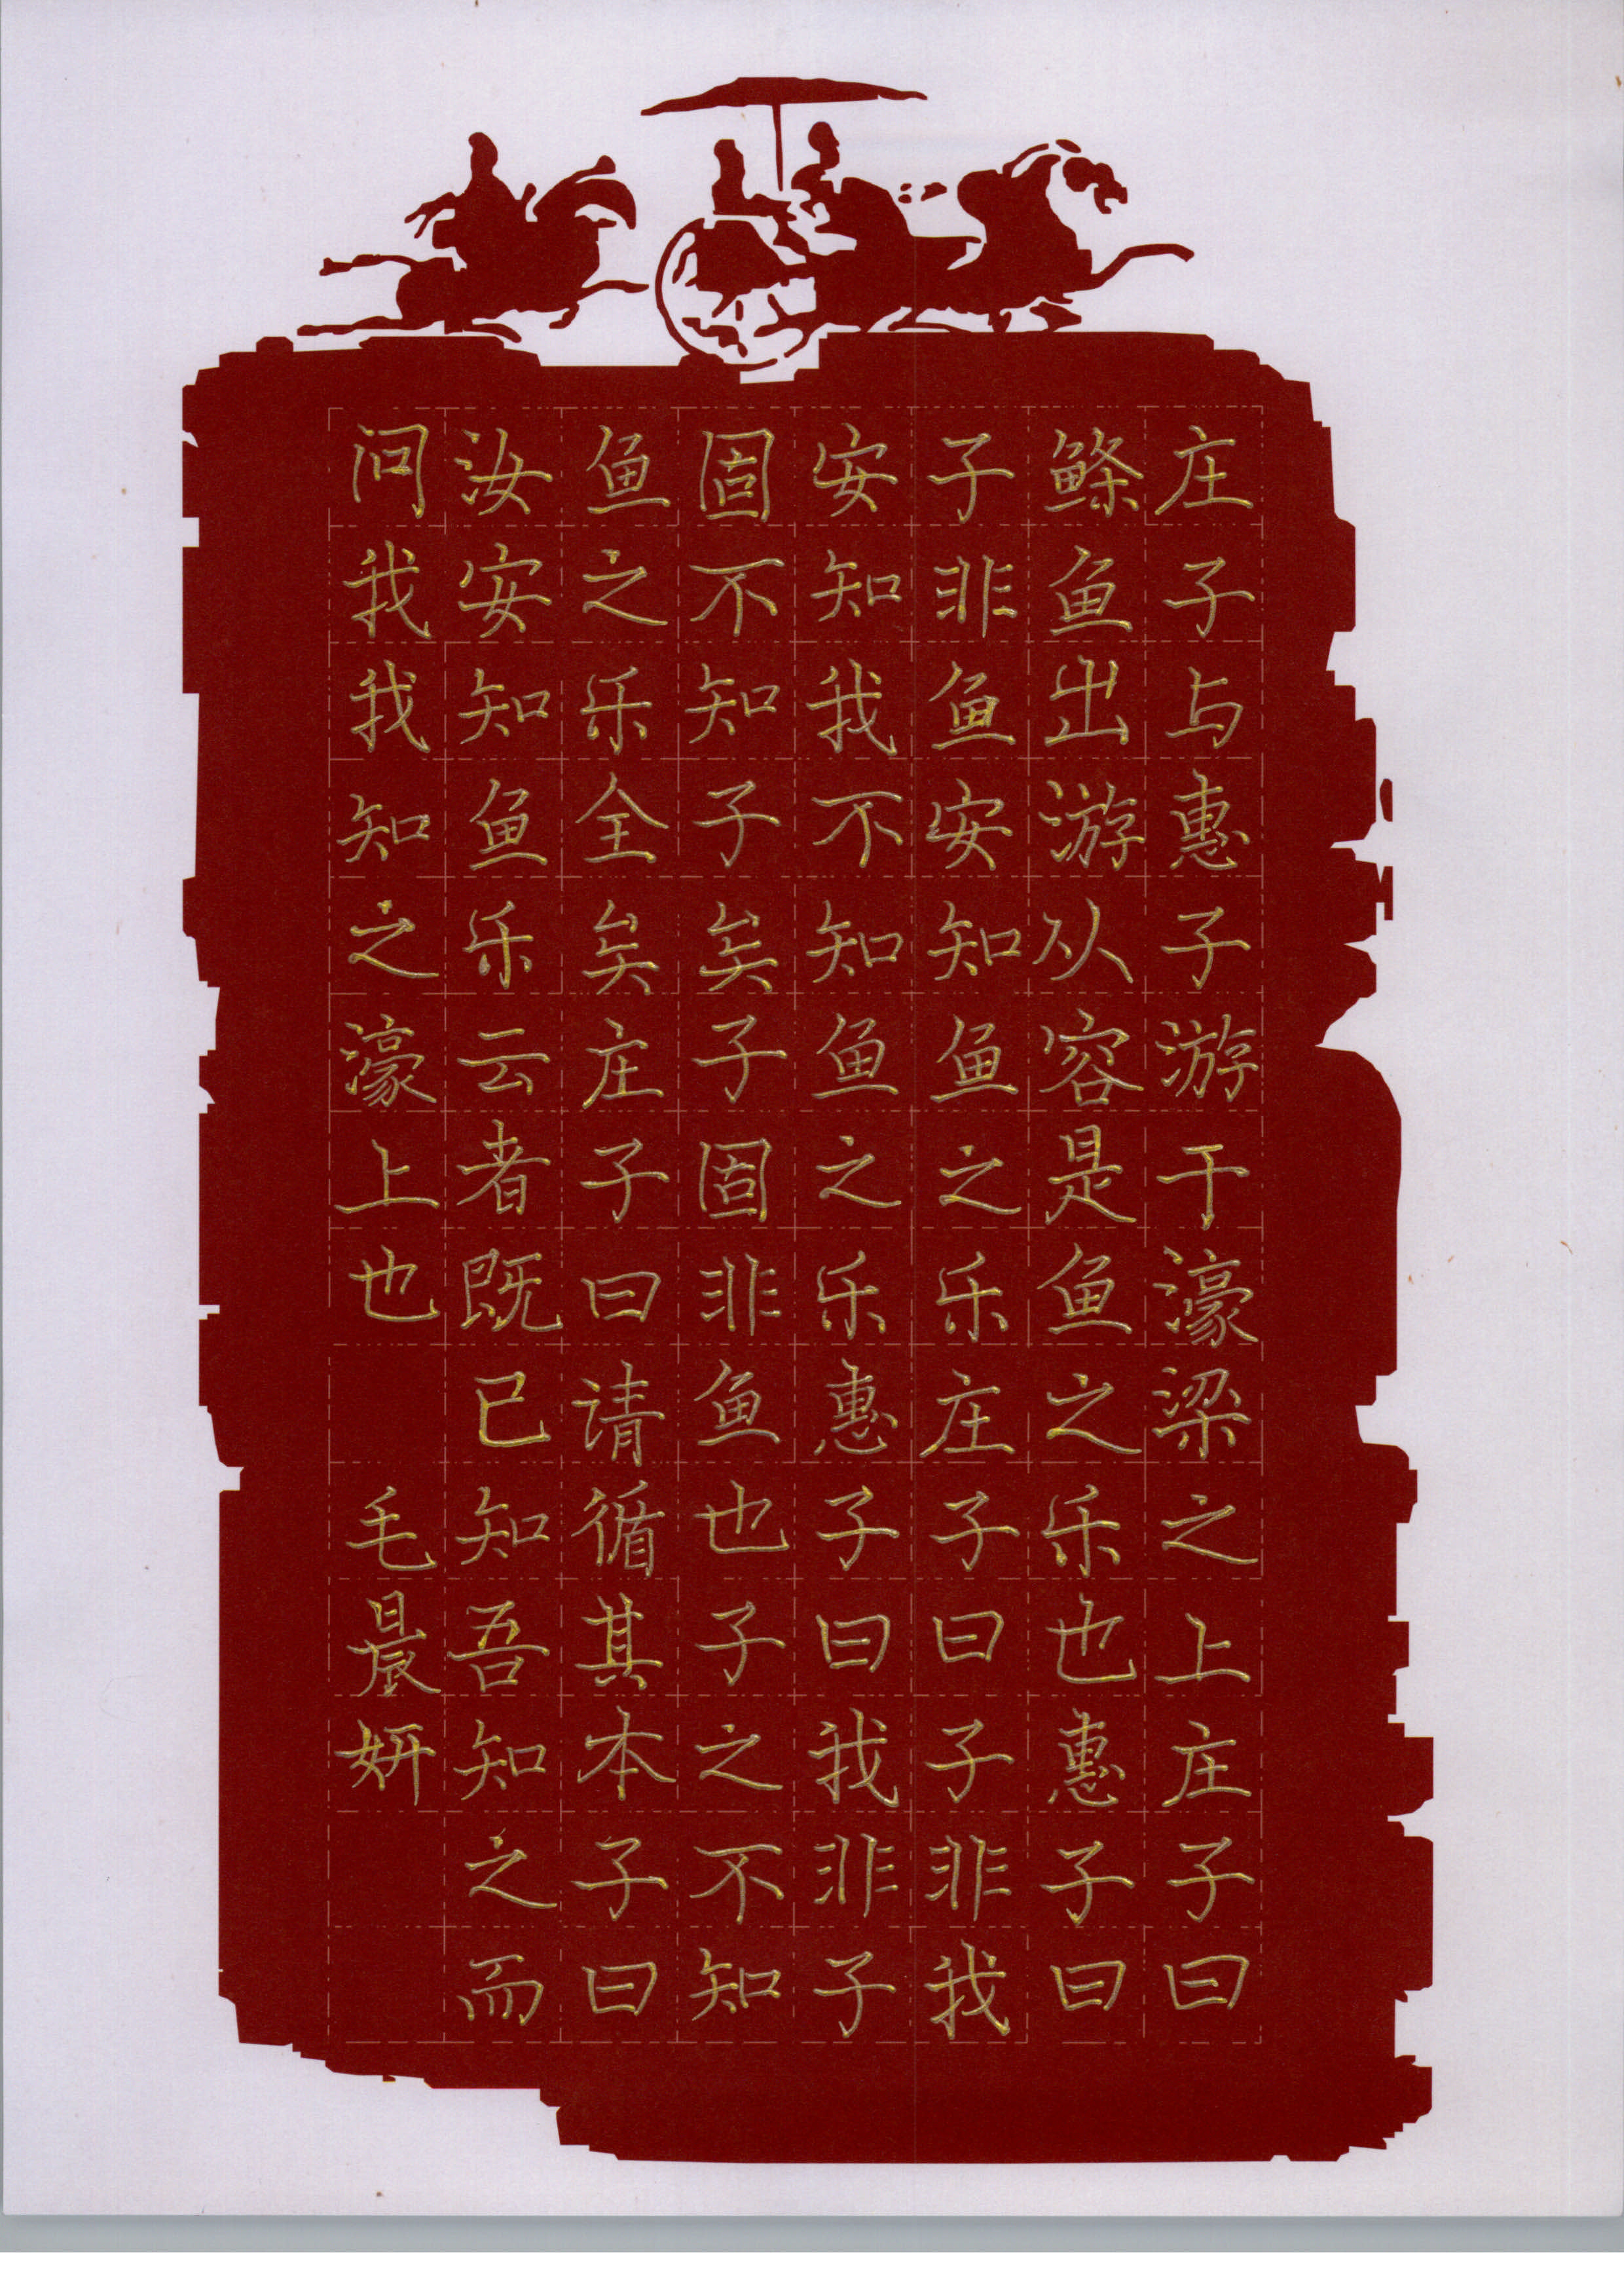 庄子与惠子游于濠梁之上庄子曰
鲦鱼出游从容是鱼之乐也惠子曰
子非鱼安知鱼之乐庄子曰子非我
安知我不知鱼之乐惠子曰我非子
固不知子矣子固非鱼也子之不知
鱼之乐全矣庄子曰请循其本子曰
汝安知鱼乐云者既已知吾知之而
问我我知之濠上也 毛晨妍